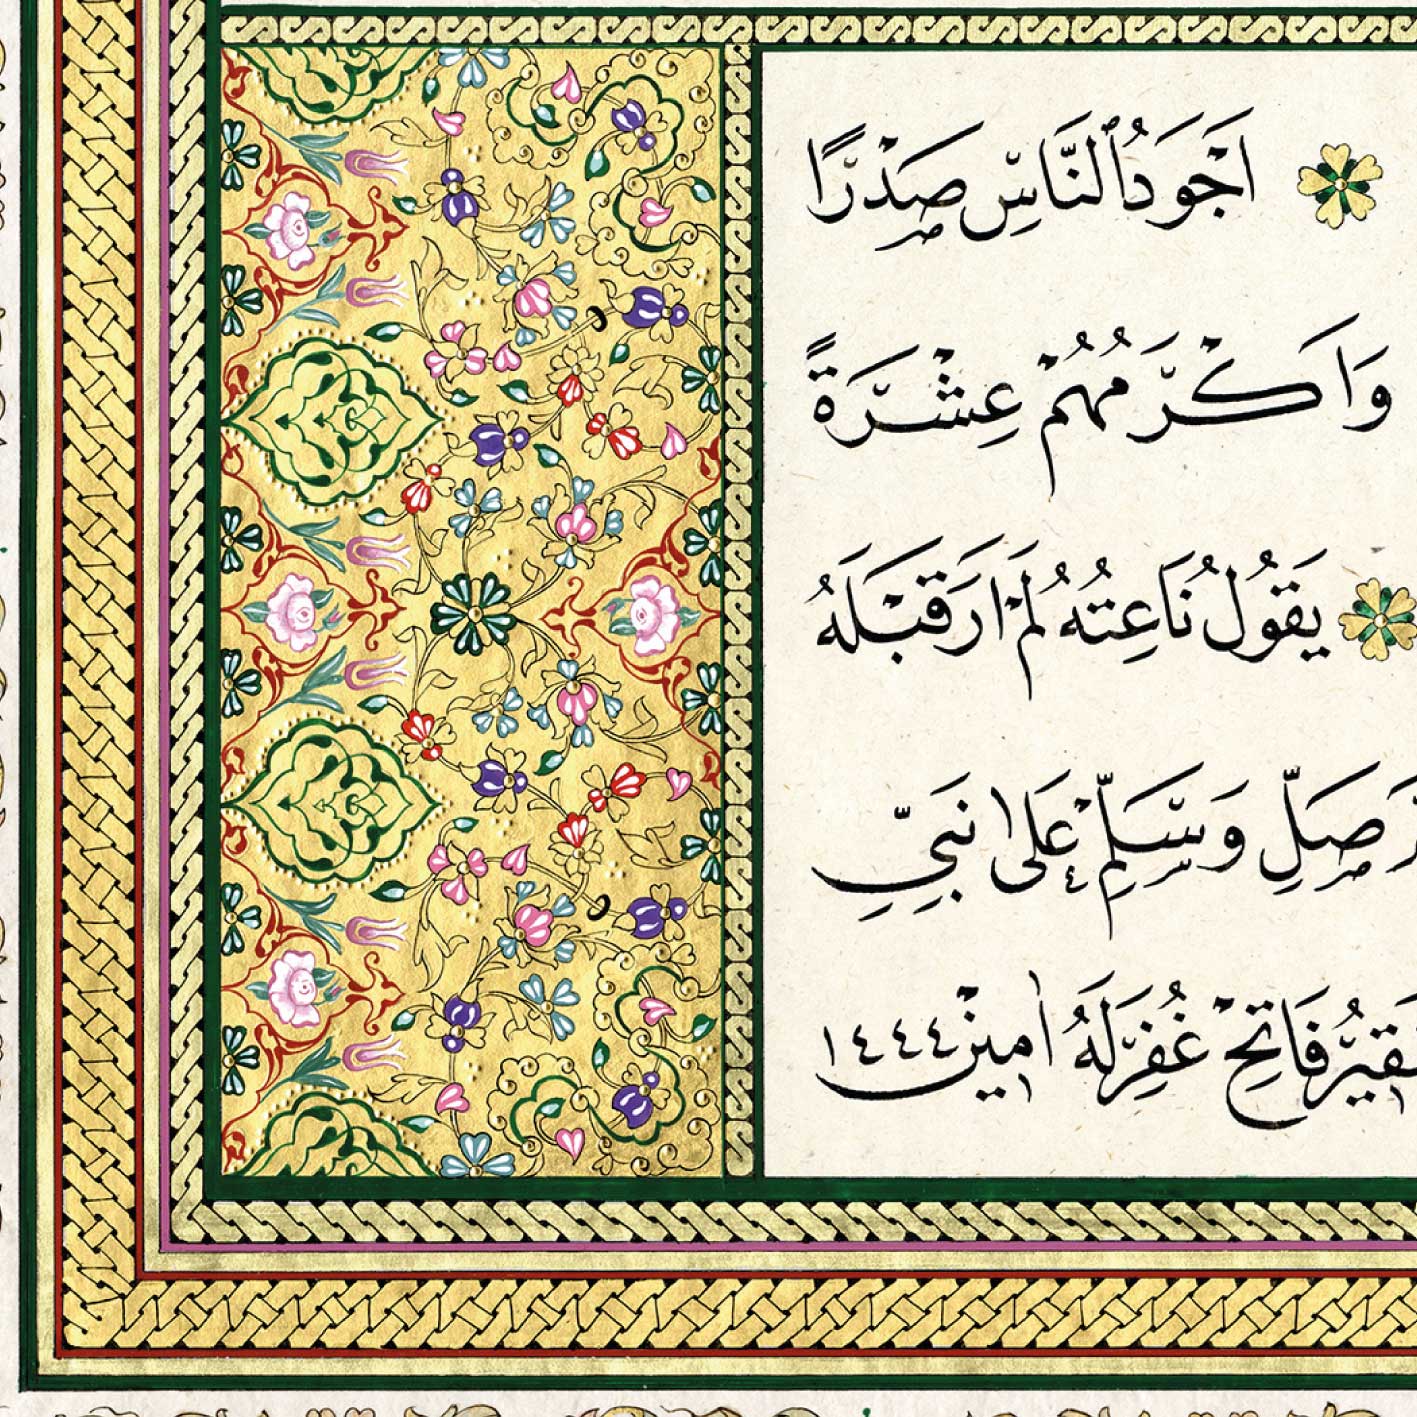 اَجْوَدُ ٱلنَّاسِ صَدْرًا
وَاَكْرَمُهُمْ عِشْرَةً
يَقُولُ نَاعِتُهُ لَمْ اَرَ قَبْلَهُ
صَلِّ وَسَلِّمْ عَلٰى نَبِيِّ
فَاتِحْ غُفِرَ لَهُ اٰمِينْ ١٤٤٤